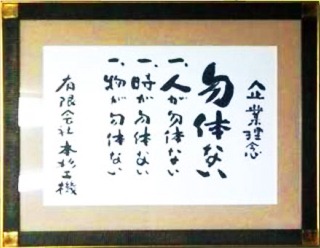 企業理念
勿体ない
一、人が勿体ない
一、時が勿体ない
一、物が勿体ない
有限会社本杉工機